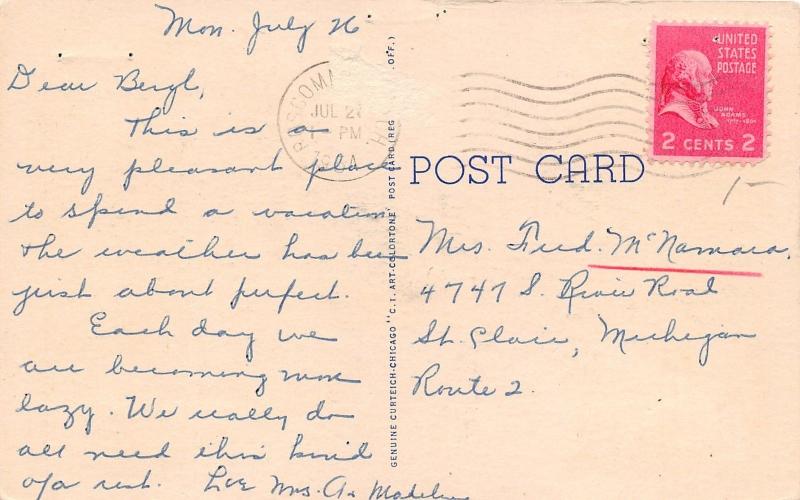 Mon. July 26
Dear Bergl,
This is a
very pleasant place
to spend a vacation
the weather has been
just about perfect.
Each day we
are becoming more
lazy. We really do
all need this kind
of a rest. Love Mrs. A & Madeline
GENUINE CURTEICH-CHICAGO "C.T. ART-COLORTONE" POST CARD (REG. OFF.)
ROSCOMM
JUL 27
PM
UNITED
STATES
POSTAGE
JOHN
ADAMS
1797-1801
2 CENTS 2
POST CARD
1-
Mrs. Fred. McNamara.
4747 S. River Road
St. Clair, Michigan
Route 2.